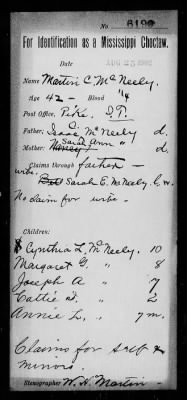 No. 6190
For Identification as a Mississippi Choctaw.
Date AUG 25 1902
Name Martin C. McNeely.
Age 42 - Blood 1/4
Post Office, Pike, I.T.
Father: Isaac C. McNeely d.
Mother: Sarah Ann " d.
Claims through father -
wife.
Sarah E. McNeely. I.W.
No claim for wife -
Children:
Cynthia L. McNeely. 10
Margaret G. " 8
Joseph A " 7
Cattie D. " 2
Annie L. " 7 m.
Claims for self &
minors.
Stenographer W. H. Martin -